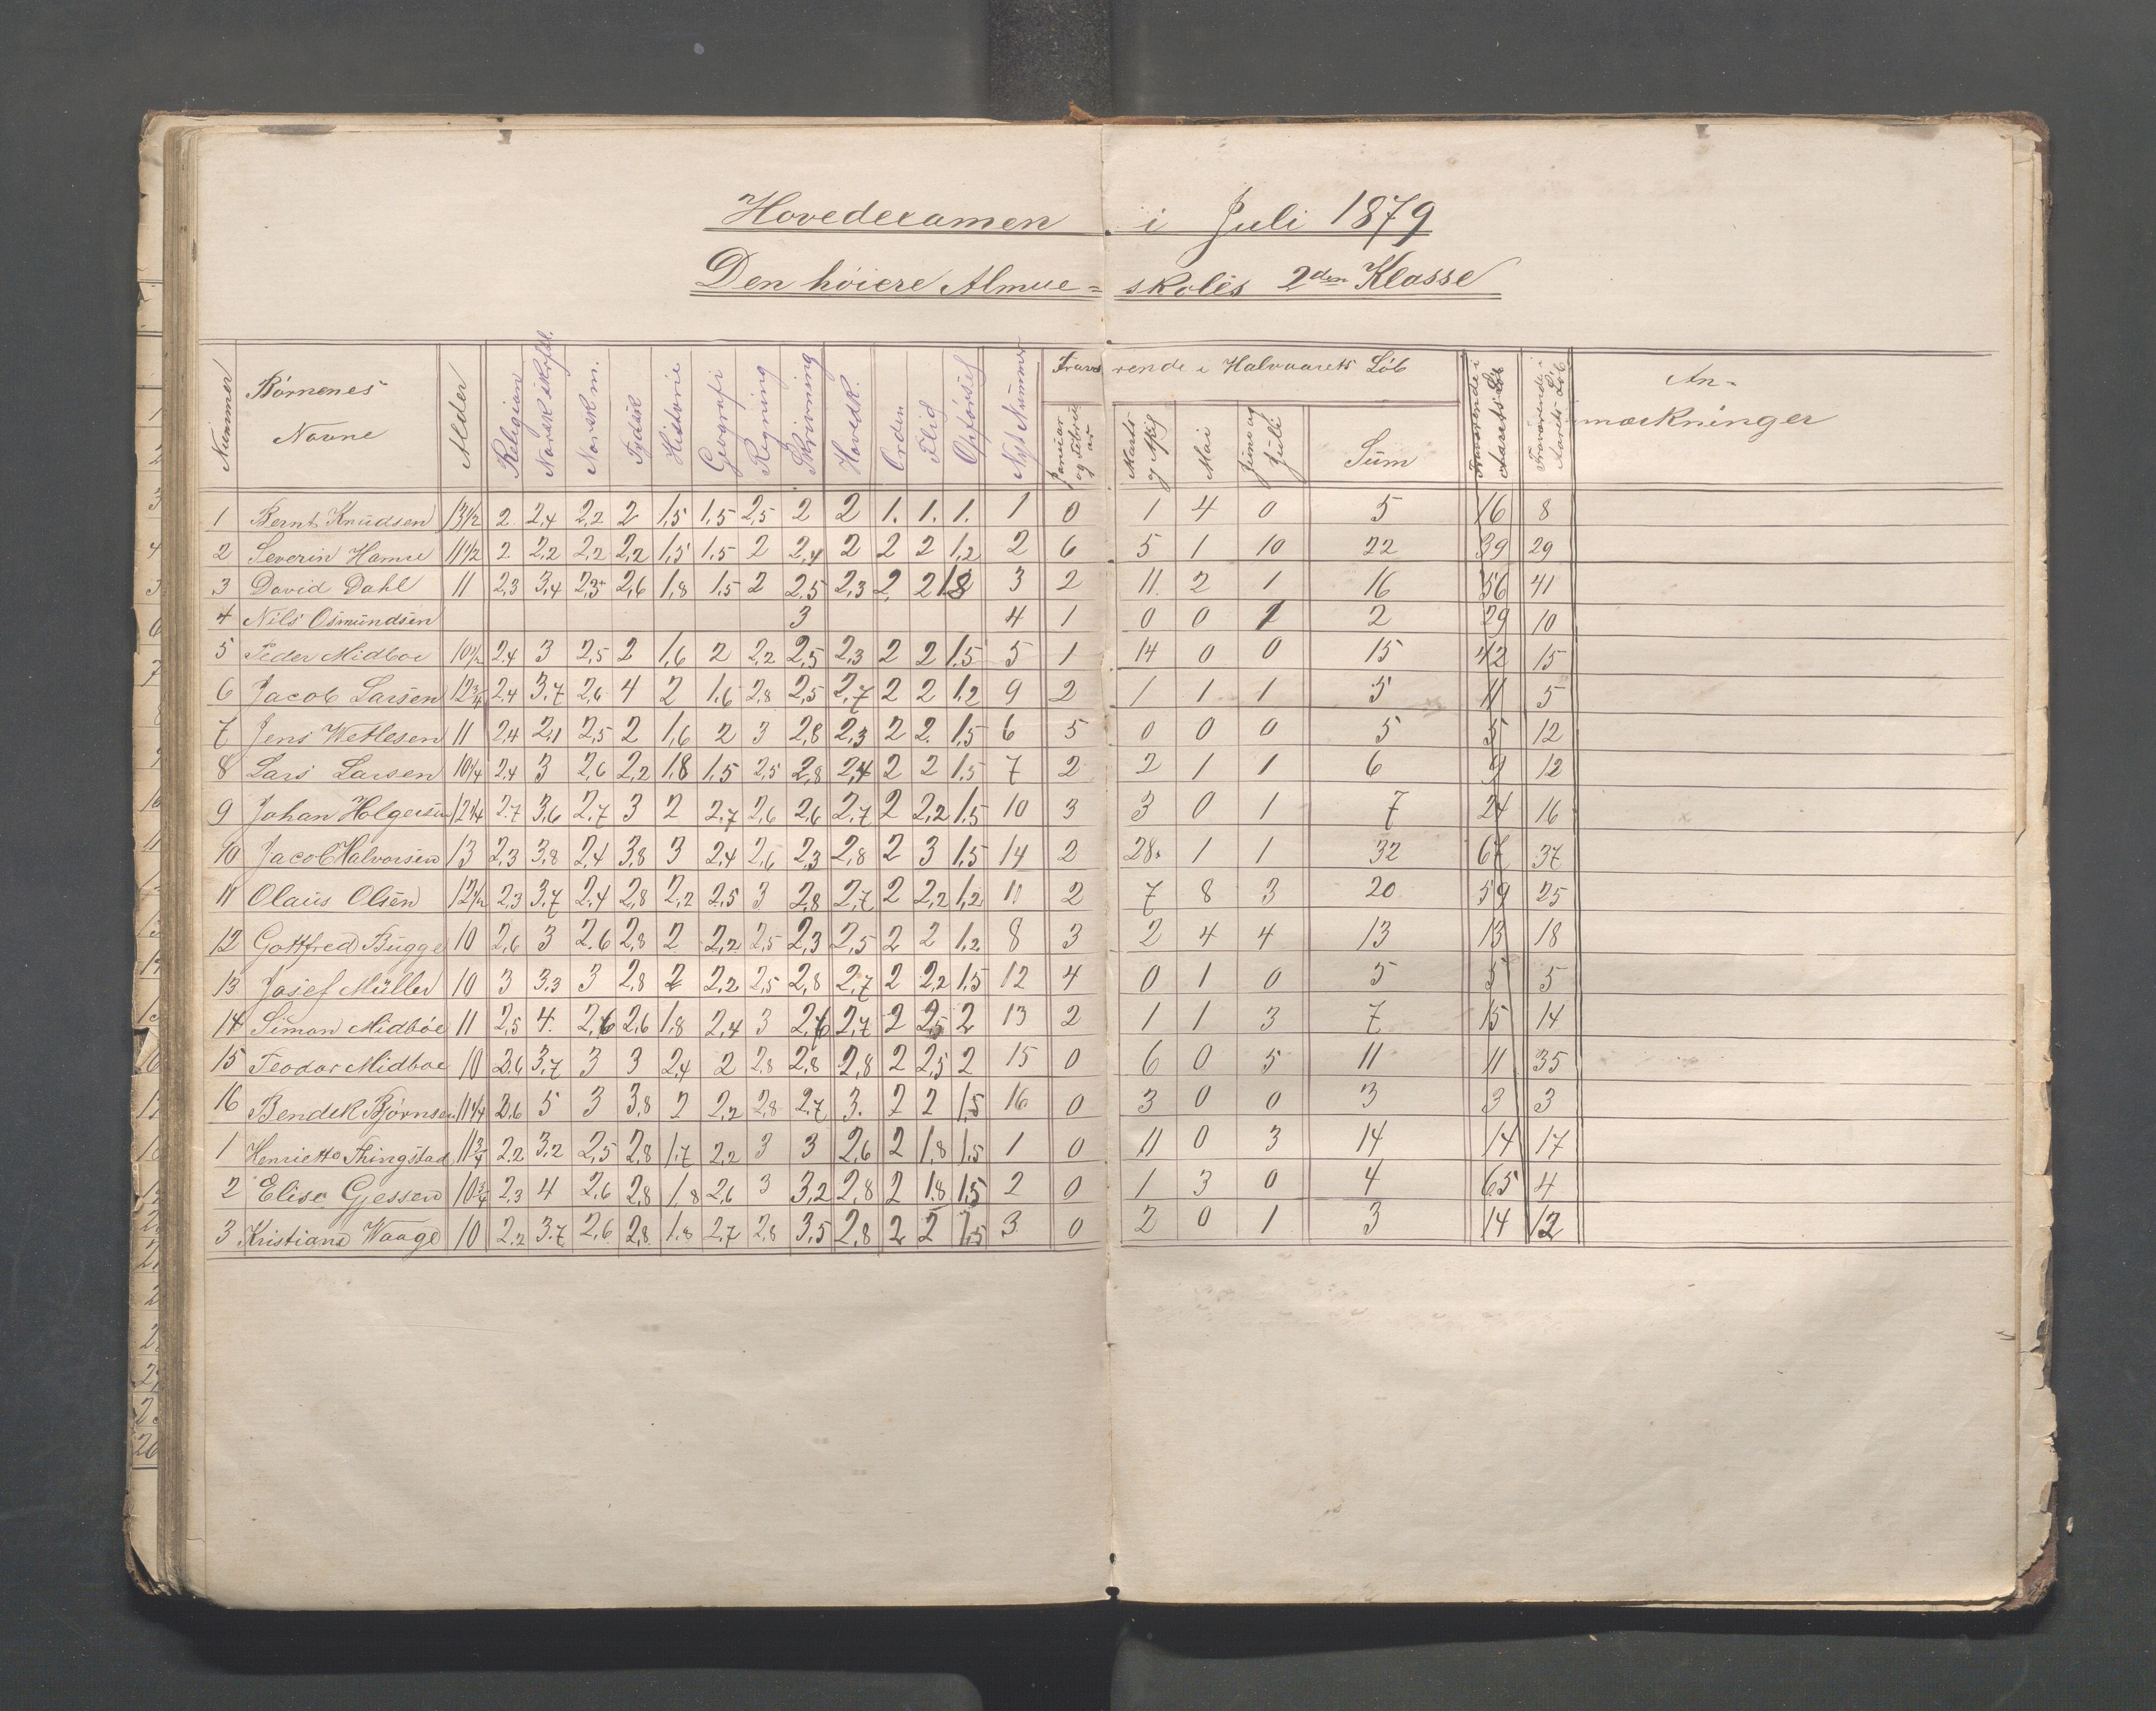 Hovedexamen i Juli 1879
Den høiere Almue-skoles 2den Klasse
Nummer Børnenes Navne Alder Religion Norsk skriftl. Norsk m. Tydsk Historie Geografi Regning Skrivning Hovedk. Orden Flid Opførsel Nyt Nummer Fraværende i Halvaarets Løb Fraværende i Aarets Løb Fraværende i Aarets Løb An-mærkninger
Januar og Februar Marts og April Mai Juni og Juli Sum
1 Bernt Knudsen 13 1/2 2 2,4 2,2 2 1,5 1,5 2,5 2 2 1. 1. 1. 1 0 1 4 0 5 16 8
2 Severin Hamre 11 1/2 2 2,2 2,2 2,2 1,5 1,5 2 2,4 2 2 2 1,2 2 6 5 1 10 22 39 29
3 David Dahl 11 2,3 3,4 2,3 2,6 1,8 1,5 2 2,5 2,3 2 2 1,8 3 2 11 2 1 16 56 41
4 Nils Osmundsen 3 4 1 0 0 1 2 29 10
5 Peder Midboe 10 1/2 2,4 3 2,5 2 1,6 2 2,2 2,5 2,3 2 2 1,5 5 1 14 0 0 15 42 15
6 Jacob Larsen 12 3/4 2,4 3,7 2,6 4 2 1,6 2,8 2,5 2,7 2 2 1,2 9 2 1 1 1 5 11 5
7 Jens Wetlesen 11 2,4 2,1 2,5 2 1,6 2 3 2,8 2,3 2 2 1,5 6 5 0 0 0 5 5 12
8 Lars Larsen 10 1/4 2,4 3 2,6 2,2 1,8 1,5 2,5 2,8 2,4 2 2 1,5 7 2 2 1 1 6 9 12
9 Johan Holgersen 12 1/4 2,7 3,6 2,7 3 2 2,7 2,6 2,6 2,7 2 2,2 1,5 10 3 3 0 1 7 24 16
10 Jacob Halvorsen 13 2,3 3,8 2,4 3,8 3 2,4 2,6 2,3 2,8 2 3 1,5 14 2 28 1 1 32 67 37
11 Olaus Olsen 12 1/2 2,3 3,7 2,4 2,8 2,2 2,5 3 2,8 2,7 2 2,2 1,2 11 2 7 8 3 20 59 25
12 Gottfred Bugge 10 2,6 3 2,6 2,8 2 2,2 2,5 2,3 2,5 2 2 1,2 8 3 2 4 4 13 13 18
13 Josef Müller 10 3 3,3 3 2,8 2 2,2 2,5 2,8 2,7 2 2,2 1,5 12 4 0 1 0 5 5 5
14 Simon Midbøe 11 2,5 4. 2,6 2,6 1,8 2,4 3 2,6 2,7 2 2,5 2 13 2 1 1 3 7 15 14
15 Teodor Midboe 10 2,6 3,7 3 3 2,4 2 2,8 2,8 2,8 2 2,5 2 15 0 6 0 5 11 11 35
16 Bendek Bjørnsen 11 1/4 2,6 5 3 3,8 2 2,2 2,8 2,7 3. 2 2 1,5 16 0 3 0 0 3 3 3
1 Henriette Thingstad 11 3/4 2,2 3,2 2,5 2,8 1,7 2,2 3 3 2,6 2 1,8 1,5 1 0 11 0 3 14 14 17
2 Elise Gjessen 10 3/4 2,3 4 2,6 2,8 1,8 2,6 3 3,2 2,8 2 1,8 1,5 2 0 1 3 0 4 65 4
3 Kristiane Waage 10 2,2 3,7 2,6 2,8 1,8 2,7 2,8 3,5 2,8 2 2 1,5 3 0 2 0 1 3 14 12